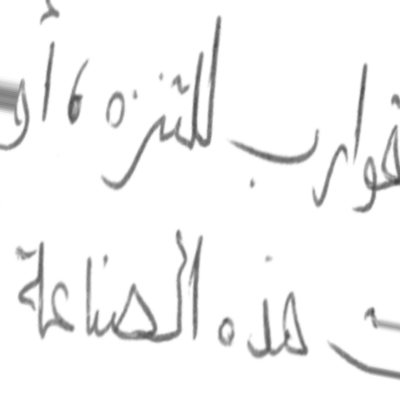 قوارب للتنزه، أو
هذه الصناعة